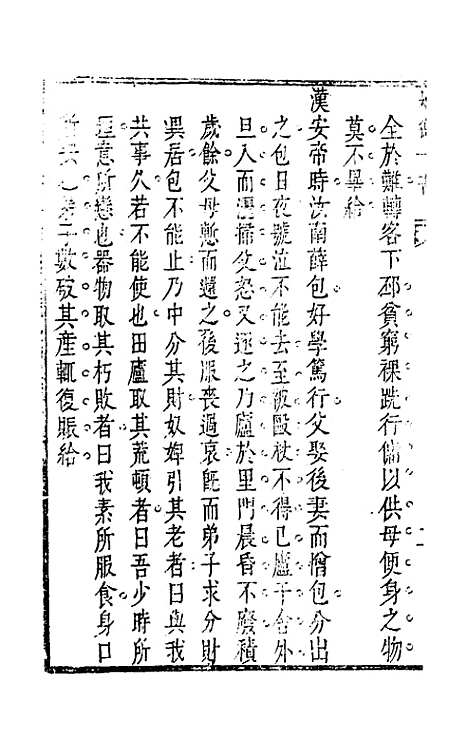 全於難轉客下邳貧窮裸跣行傭以供母便身之物
莫不畢給
漢安帝時汝南薛包好學篤行父娶後妻而憎包分出
之包日夜號泣不能去至被毆杖不得已廬于舍外
旦入而洒掃父怒又逐之乃廬於里門晨昏不廢積
歲餘父母慙而還之後服喪過哀旣而弟子求分財
異居包不能止乃中分其財奴婢引其老者曰與我
共事久若不能使也田廬取其荒頓者曰吾少時所
理意所戀也器物取其朽敗者曰我素所服食身口
所安也弟子數破其產輒復賑給